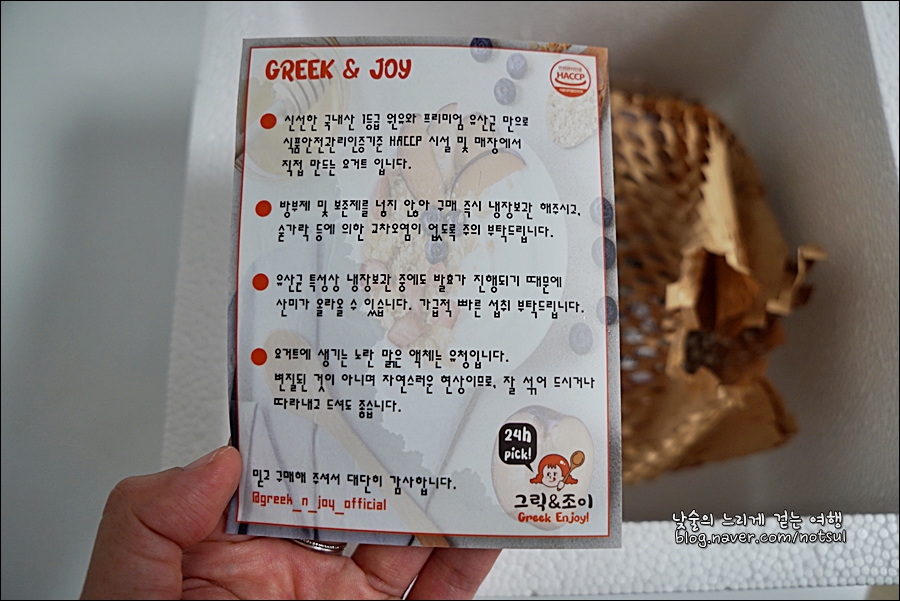 GREEK & JOY
HACCP
신선한 국내산 1등급 원유와 프리미엄 유산균 만으로
식품안전관리인증기준 HACCP 시설 및 매장에서
직접 만드는 요거트 입니다.
방부제 및 보존제를 넣지 않아 구매 즉시 냉장보관 해주시고,
숟가락 등에 의한 교차오염이 없도록 주의 부탁드립니다.
유산균 특성상 냉장보관 중에도 발효가 진행되기 때문에
산미가 올라올 수 있습니다. 가급적 빠른 섭취 부탁드립니다.
요거트에 생기는 노란 맑은 액체는 유청입니다.
변질된 것이 아니며 자연스러운 현상이므로, 잘 섞어 드시거나
따라내고 드셔도 좋습니다.
24h
pick!
믿고 구매해 주셔서 대단히 감사합니다.
@greek_n_joy_official
그릭&조이
Greek Enjoy!
낮술의 느리게 걷는 여행
blog.naver.com/notsul